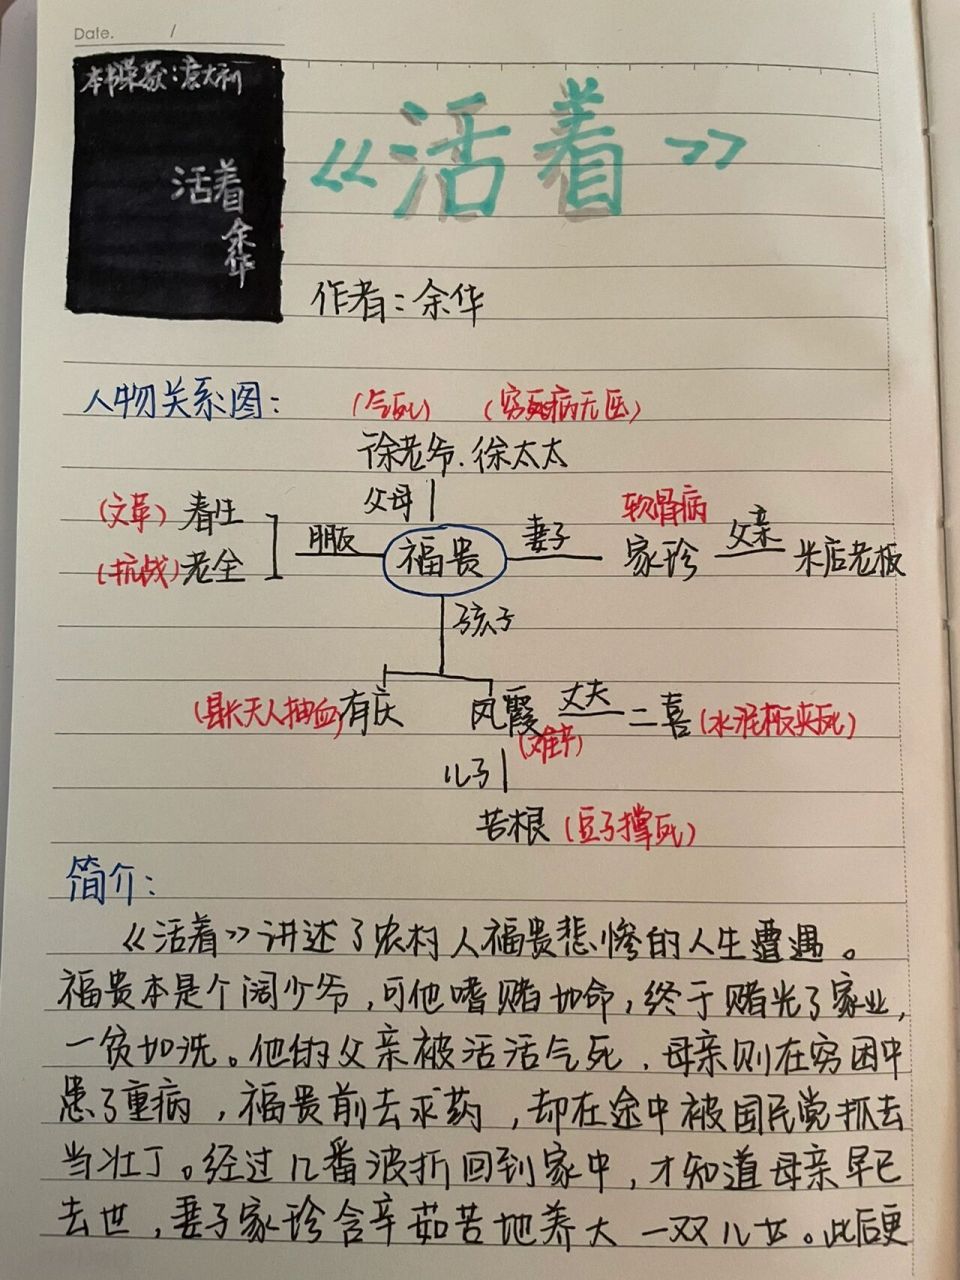 Date. /
本书荣获:意大利
活着
余华
《活着》
作者:余华
人物关系图:
(气死) (穷死病无医)
徐老爷.徐太太
父母
(文革) 春生
(抗战) 老全
朋友
福贵
妻子
软骨病
家珍
父亲
米店老板
孩子
(县长夫人抽血)有庆
凤霞
(难产)
丈夫
二喜(水泥板夹死)
儿子
苦根(豆子撑死)
简介:
《活着》讲述了农村人福贵悲惨的人生遭遇。
福贵本是个阔少爷,可他嗜赌如命,终于赌光了家业,
一贫如洗。他的父亲被活活气死,母亲则在穷困中
患了重病,福贵前去求药,却在途中被国民党抓去
当壮丁。经过几番波折回到家中,才知道母亲早已
去世,妻子家珍含辛茹苦地养大一双儿女。此后更